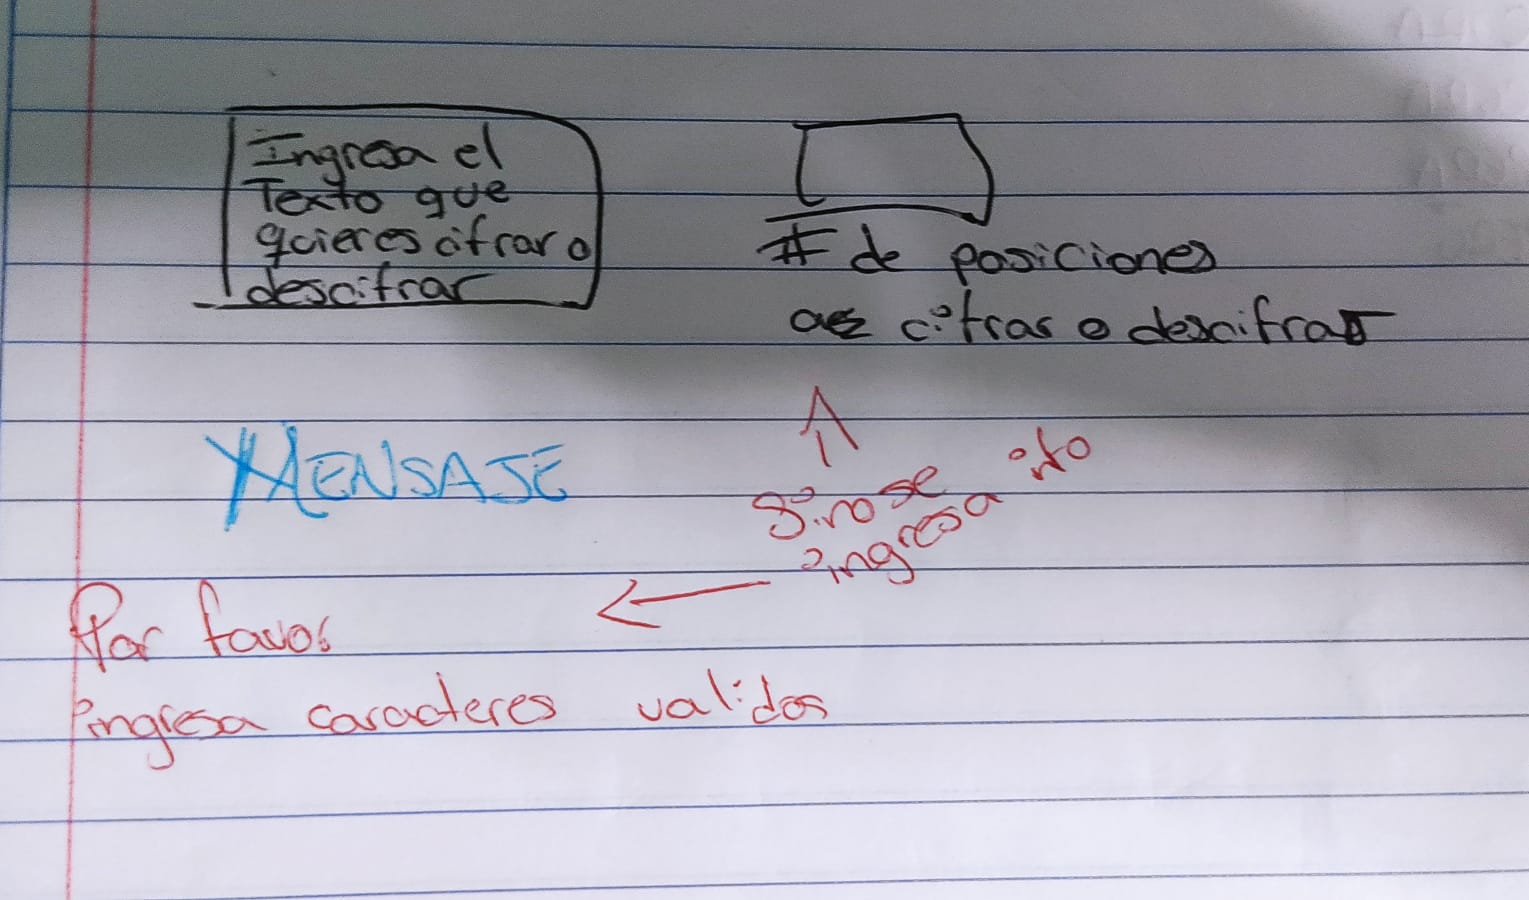 Ingresa el
Texto que
quieres cifrar o
descifrar
# de posiciones
a cifrar o descifrar
MENSAJE
Si no se
ingresa
Por favor
ingresa caracteres validos